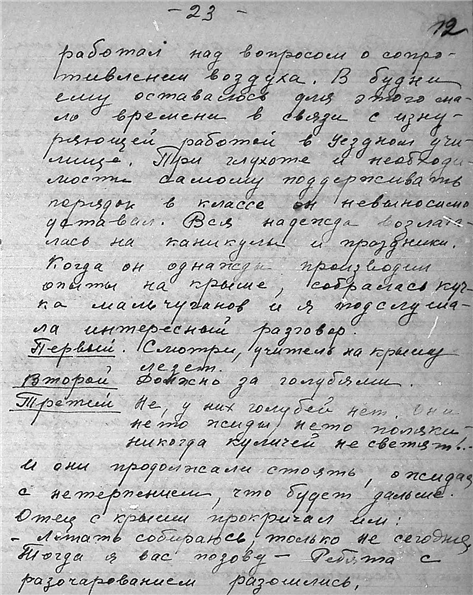 - 23 -
12
работал над вопросом о сопро-
тивлении воздуха. В будни
ему оставалось для этого ма-
ло времени в связи с изну-
ряющей работой в уездном учи-
лище. При глухоте и необходи-
мости самому поддерживать
порядок в классе он невыносимо
уставал. Вся надежда возлага-
лась на каникулы и праздники.
Когда он однажды производил
опыты на крыше, собралась куч-
ка мальчуганов и я подслуша-
ла интересный разговор.
Первый. Смотри, учитель на крышу
лезет.
Второй Должно за голубями.
Третий Не, у них голубей нет. Они
не то жиды не то поляки
никогда куличей не светят.-
И они продолжали стоять, ожидая
с нетерпением, что будет дальше.
Отец с крыши прокричал им:
- Летать собираюсь, только не сегодня
Тогда я вас позову - Ребята с
разочарованием разошлись,